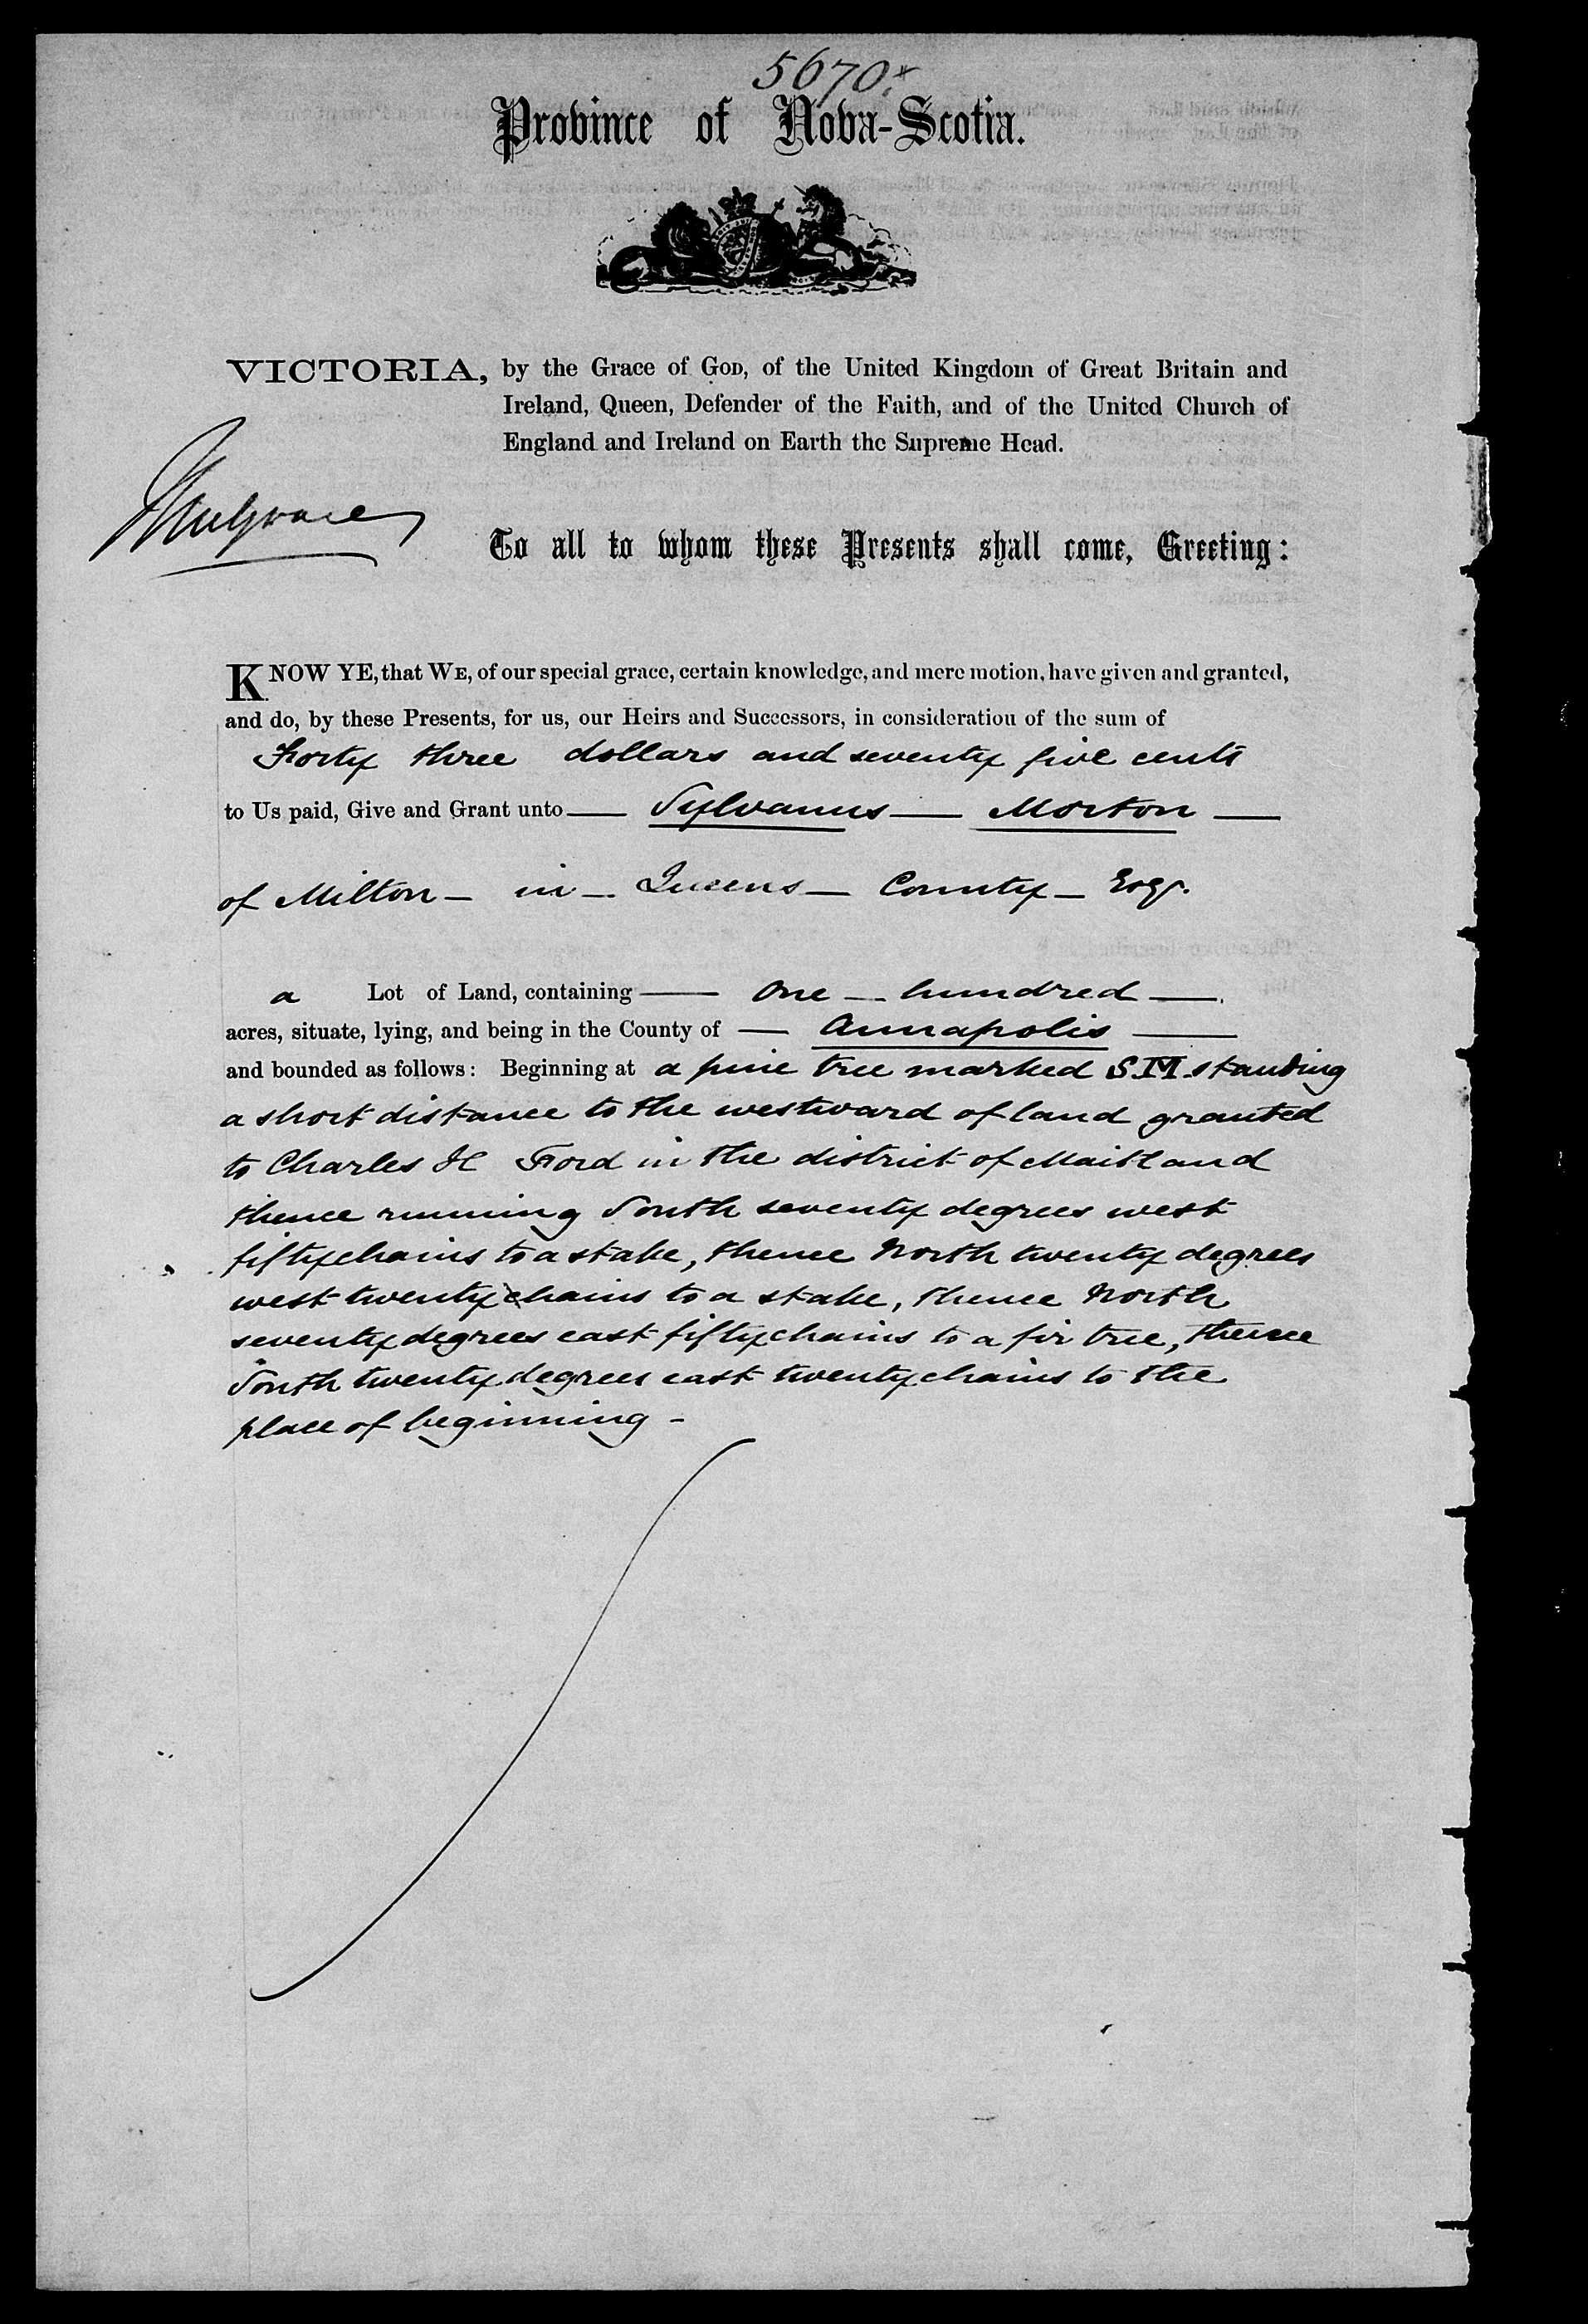 5670
Province of Nova-Scotia.
VICTORIA, by the Grace of GOD, of the United Kingdom of Great Britain and
Ireland, Queen, Defender of the Faith, and of the United Church of
England and Ireland on Earth the Supreme Head.
Mulgrave
To all to whom these Presents shall come, Greeting:
KNOW YE, that WE, of our special grace, certain knowledge, and mere motion, have given and granted,
and do, by these Presents, for us, our Heirs and Successors, in consideration of the sum of
Forty three dollars and seventy five cents
to Us paid, Give and Grant unto — Sylvanus — Morton —
of Milton — in — Queens — County — Esqr.
a Lot of Land, containing — One — hundred —
acres, situate, lying, and being in the County of — Annapolis —
and bounded as follows: Beginning at a pine tree marked S.M. standing
a short distance to the westward of land granted
to Charles H Ford in the district of Maitland
thence running South seventy degrees west
fifty chains to a stake, thence North twenty degrees
west twenty chains to a stake, thence North
seventy degrees east fifty chains to a fir tree, thence
South twenty degrees east twenty chains to the
place of beginning -